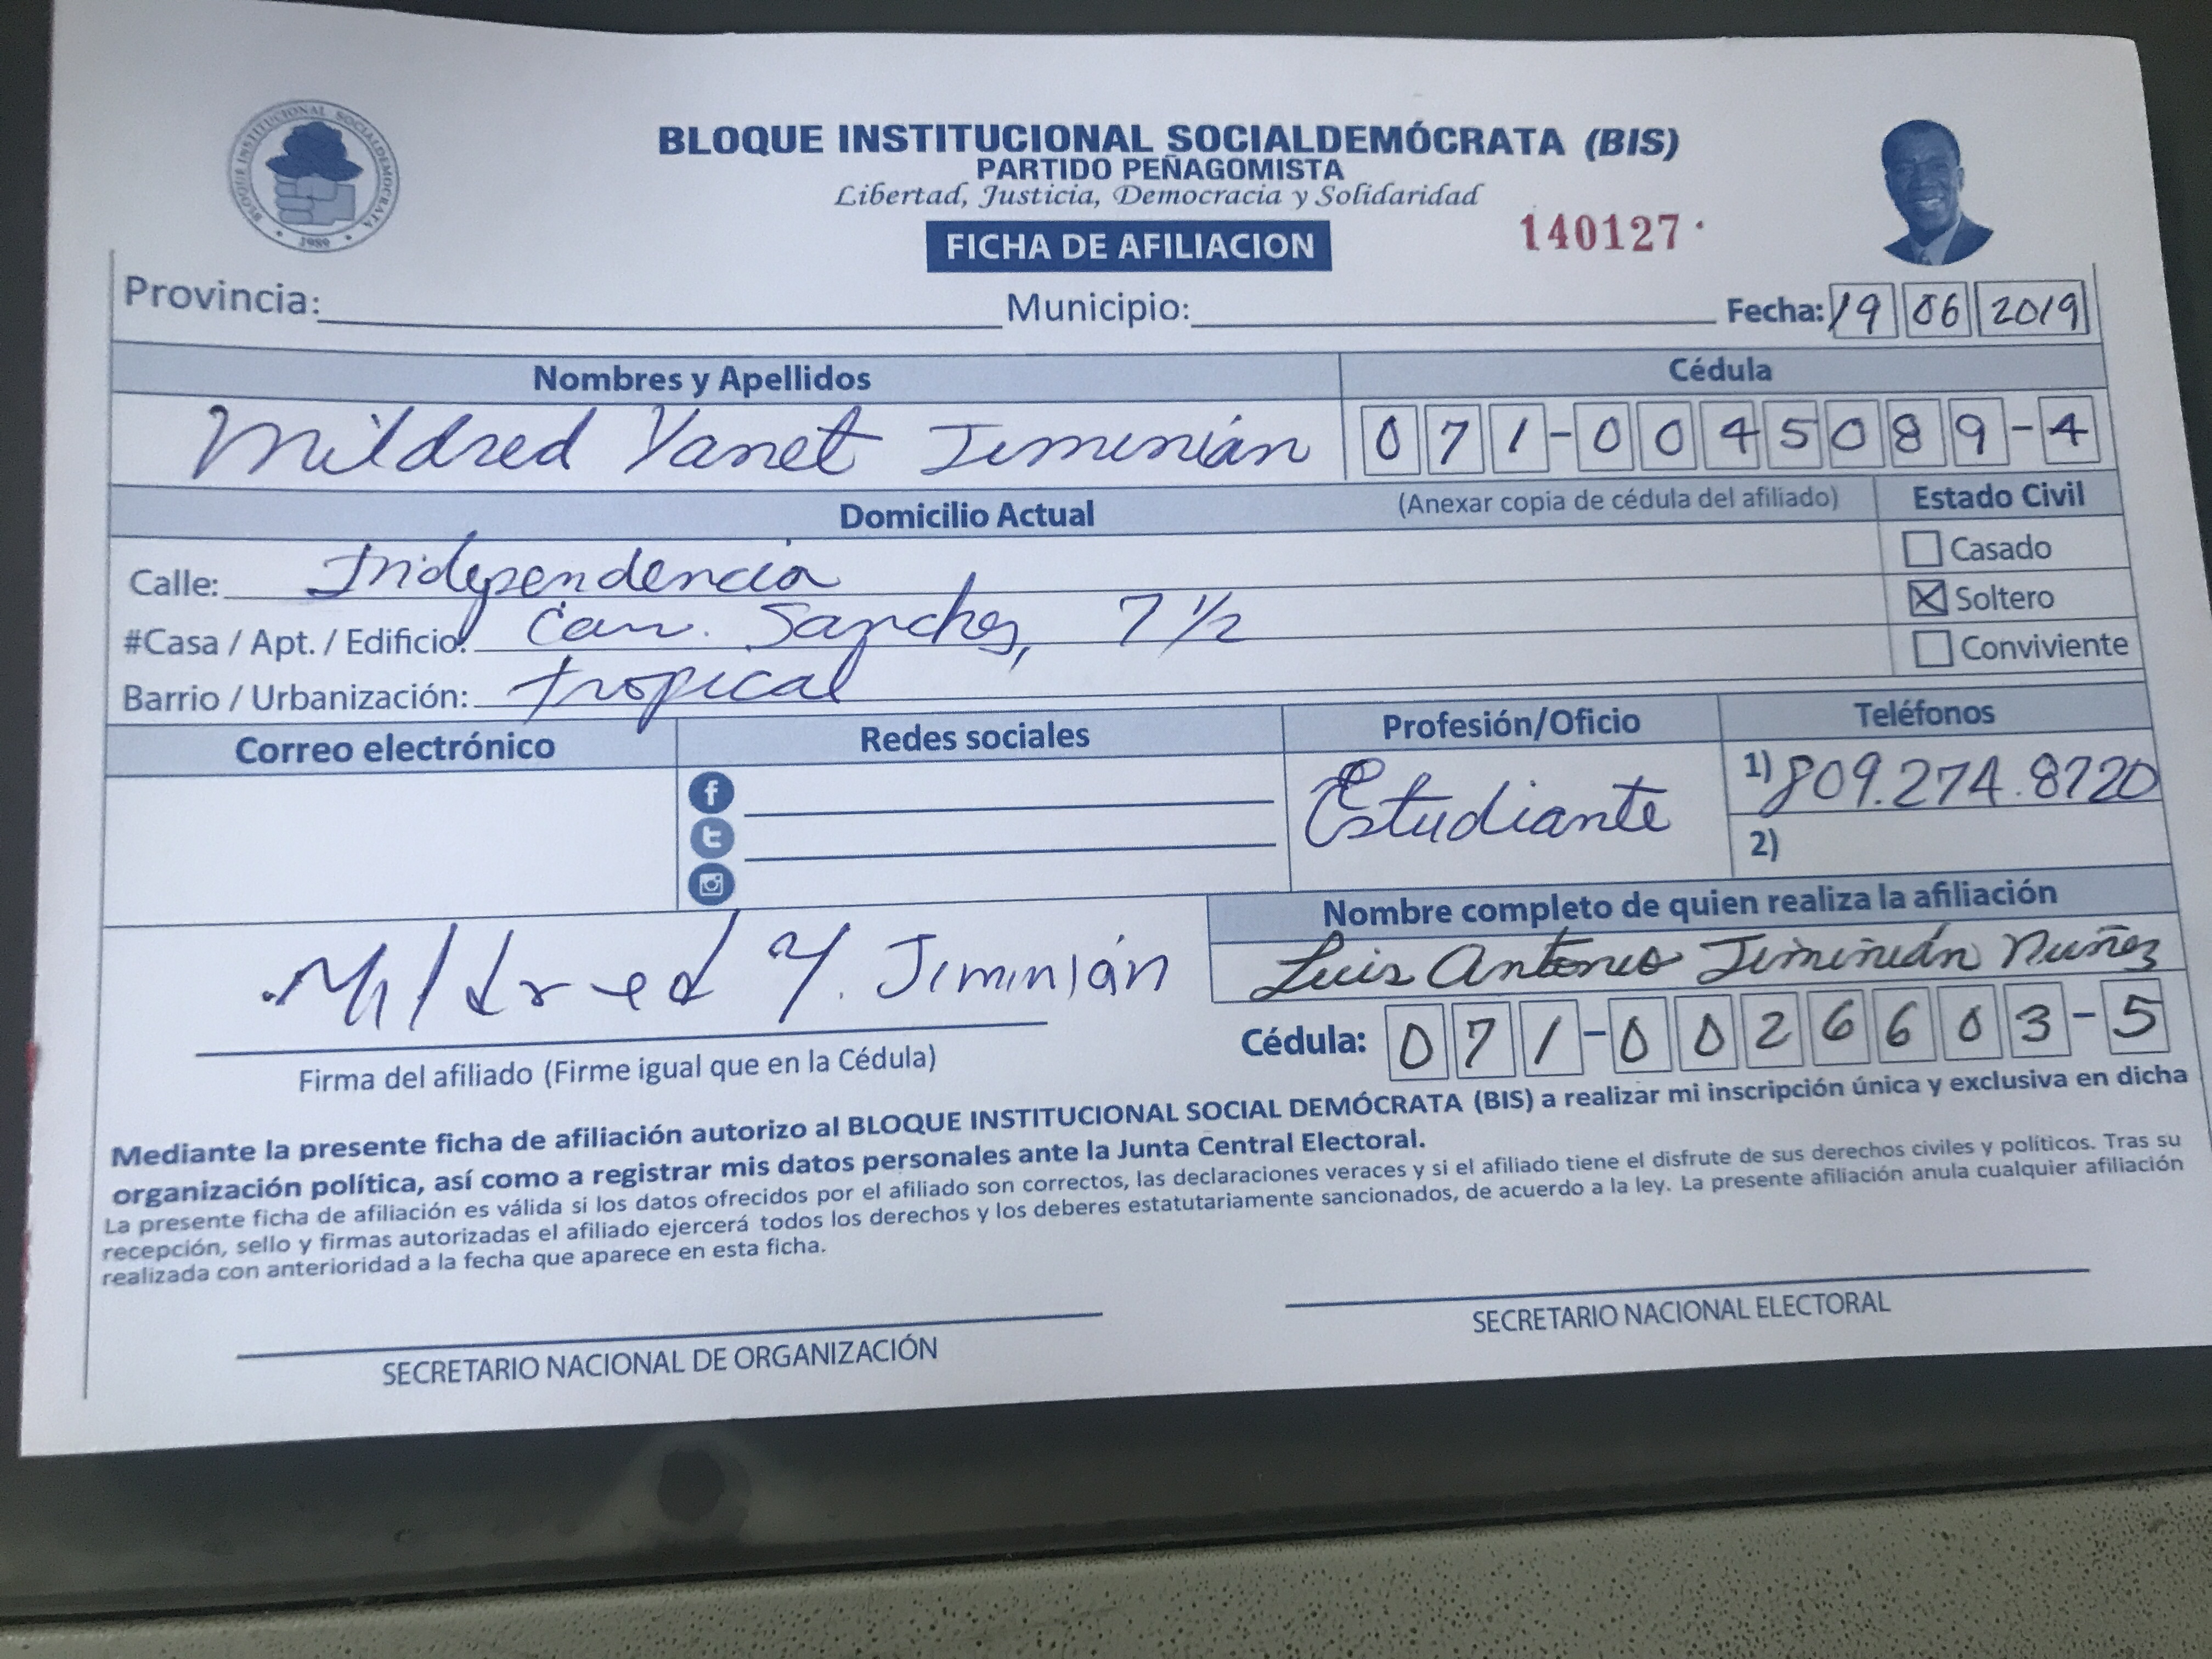 BLOQUE INSTITUCIONAL SOCIALDEMOCRATA
1989
BLOQUE INSTITUCIONAL SOCIALDEMÓCRATA (BIS)
PARTIDO PEÑAGOMISTA
Libertad, Justicia, Democracia y Solidaridad
FICHA DE AFILIACION
140127
Provincia: Municipio: Fecha: 19 06 2019
Nombres y Apellidos Cédula
Mildred Yanet Jiminián 071-0045089-4
Domicilio Actual (Anexar copia de cédula del afiliado) Estado Civil
Calle: Independencia Casado
#Casa / Apt. / Edificio: Carr. Sanchez, 7 1/2 Soltero
Barrio / Urbanización: tropical Conviviente
Correo electrónico Redes sociales Profesión/Oficio Teléfonos
Estudiante 1) 809.274.8720
2)
Nombre completo de quien realiza la afiliación
Mildred Y. Jiminián Luis Antonio Jiminián Nuñez
Cédula: 071-0026603-5
Firma del afiliado (Firme igual que en la Cédula)
Mediante la presente ficha de afiliación autorizo al BLOQUE INSTITUCIONAL SOCIAL DEMÓCRATA (BIS) a realizar mi inscripción única y exclusiva en dicha
organización política, así como a registrar mis datos personales ante la Junta Central Electoral.
La presente ficha de afiliación es válida si los datos ofrecidos por el afiliado son correctos, las declaraciones veraces y si el afiliado tiene el disfrute de sus derechos civiles y políticos. Tras su
recepción, sello y firmas autorizadas el afiliado ejercerá todos los derechos y los deberes estatutariamente sancionados, de acuerdo a la ley. La presente afiliación anula cualquier afiliación
realizada con anterioridad a la fecha que aparece en esta ficha.
SECRETARIO NACIONAL DE ORGANIZACIÓN SECRETARIO NACIONAL ELECTORAL